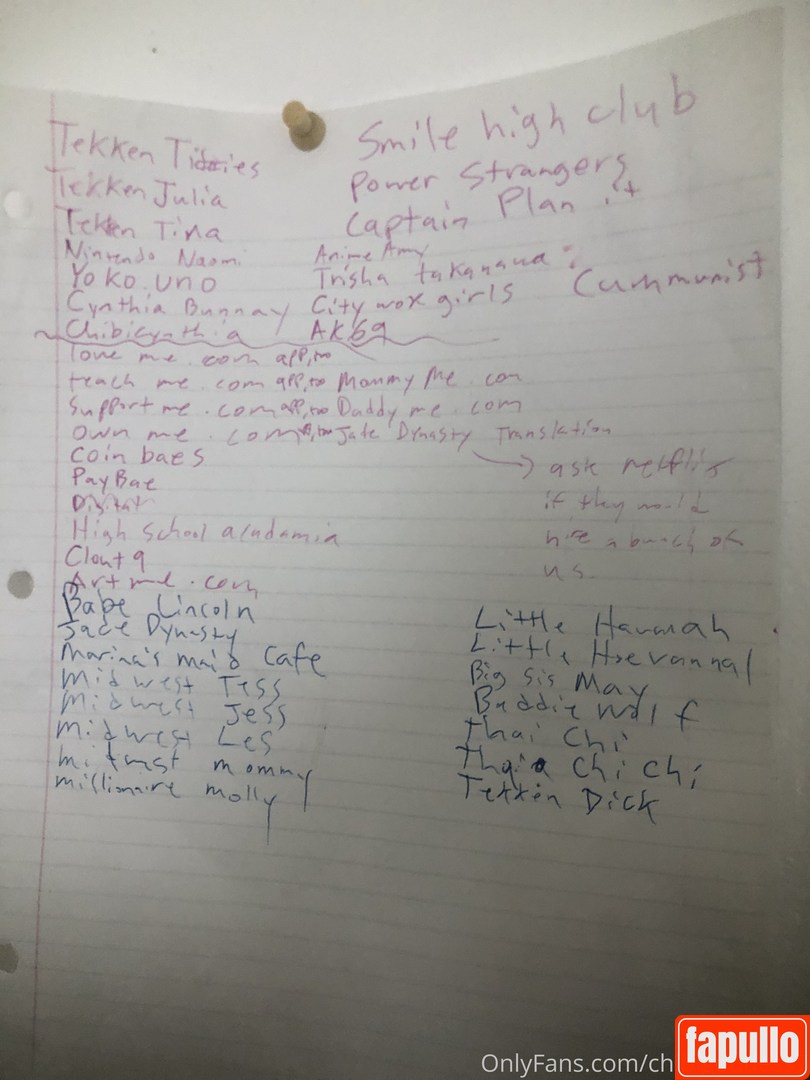 Tekken Tiddies
Smile high club
Tekken Julia
Power Strangers
Tekken Tina
Captain Plan it
Nintendo Naomi
Anime Amy
Yoko uno
Trisha takanawa
Cummunist
Cynthia Bunnay
City wox girls
Chibicynthia
AK69
love me.com app, too
teach me.com app, too Mommy Me.com
Support me.com app, too Daddy me.com
own me.com too Jade Dynasty Translation
Coin baes
ask netflix
PayBae
if they would
hire a bunch of
High School acadamia
us.
Clout 9
Art me.com
Babe Lincoln
Little Havanah
Jade Dynasty
Little
Marina's maid Cafe
Big Sis May
Midwest Tess
Baddie Wolf
Midwest Jess
Thai Chi
Midwest Les
Chi Chi
mommy
Tekken Dick
millionaire molly
OnlyFans.com/ch
fapullo